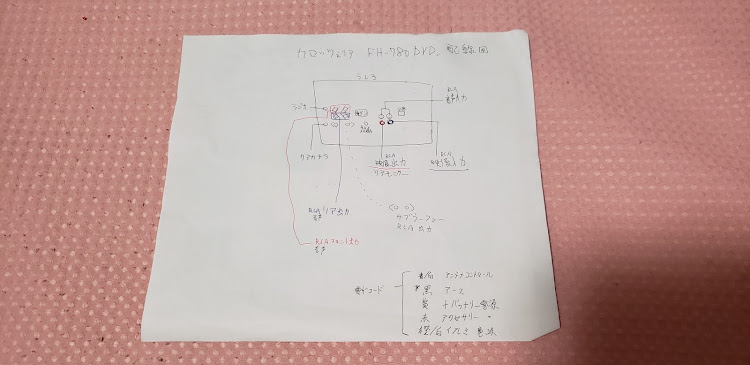 カロッツェリア FH-780DVD 配線図
うしろ
ラジオ
RCA
音声入力
リアカメラ
RCA
映像出力
リアモニター
RCA
映像入力
RCAリア出力
音声
(○ ○)
サブウーファー
RCA出力
RCAフロント出力
音声
電源コード
青/白 アンテナコントロール
黒 アース
黄 +バッテリー電源
赤 アクセサリー 〃
橙/白 イルミ 電源